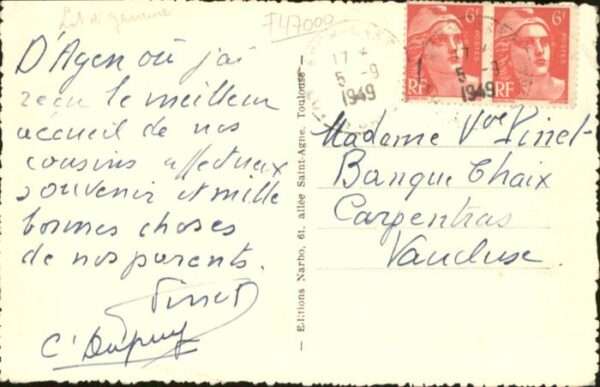 Lot et Garonne
F47000
D'Agen où j'ai
reçu le meilleur
accueil de nos
cousins affectueux
souvenir et mille
bonnes choses
de nos parents.
Pinet
C. Dupuy
— Editions Narbo, 61, allée Saint-Agne, Toulouse —
17 *
5 -9
1949
17 *
5 -9
1949
6F
RF
6F
RF
Madame Vve Pinet
Banque Chaix
Carpentras
Vaucluse.